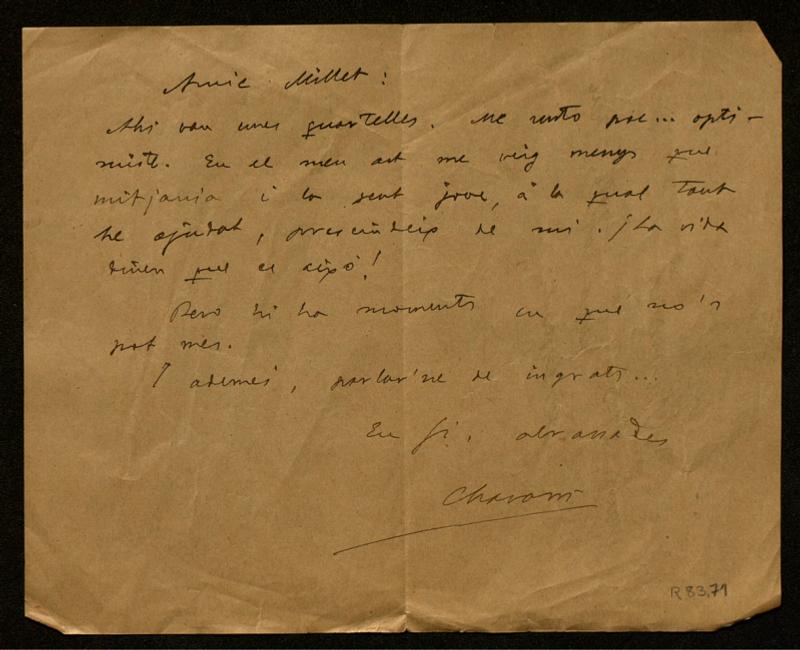 Amic Millet:
Ahi van unes quartelles. Me sento poc... opti-
miste. En el meu art me veig menys que
mitjania i la gent jove, a la qual tant
he ajudat, prescindeix de mi. ¡La vida
diuen que es aixó!
Pero hi ha moments en qué no's
pot mes.
I ademés, parlar'ne de ingrats...
En fi. abrassades
R 83.71